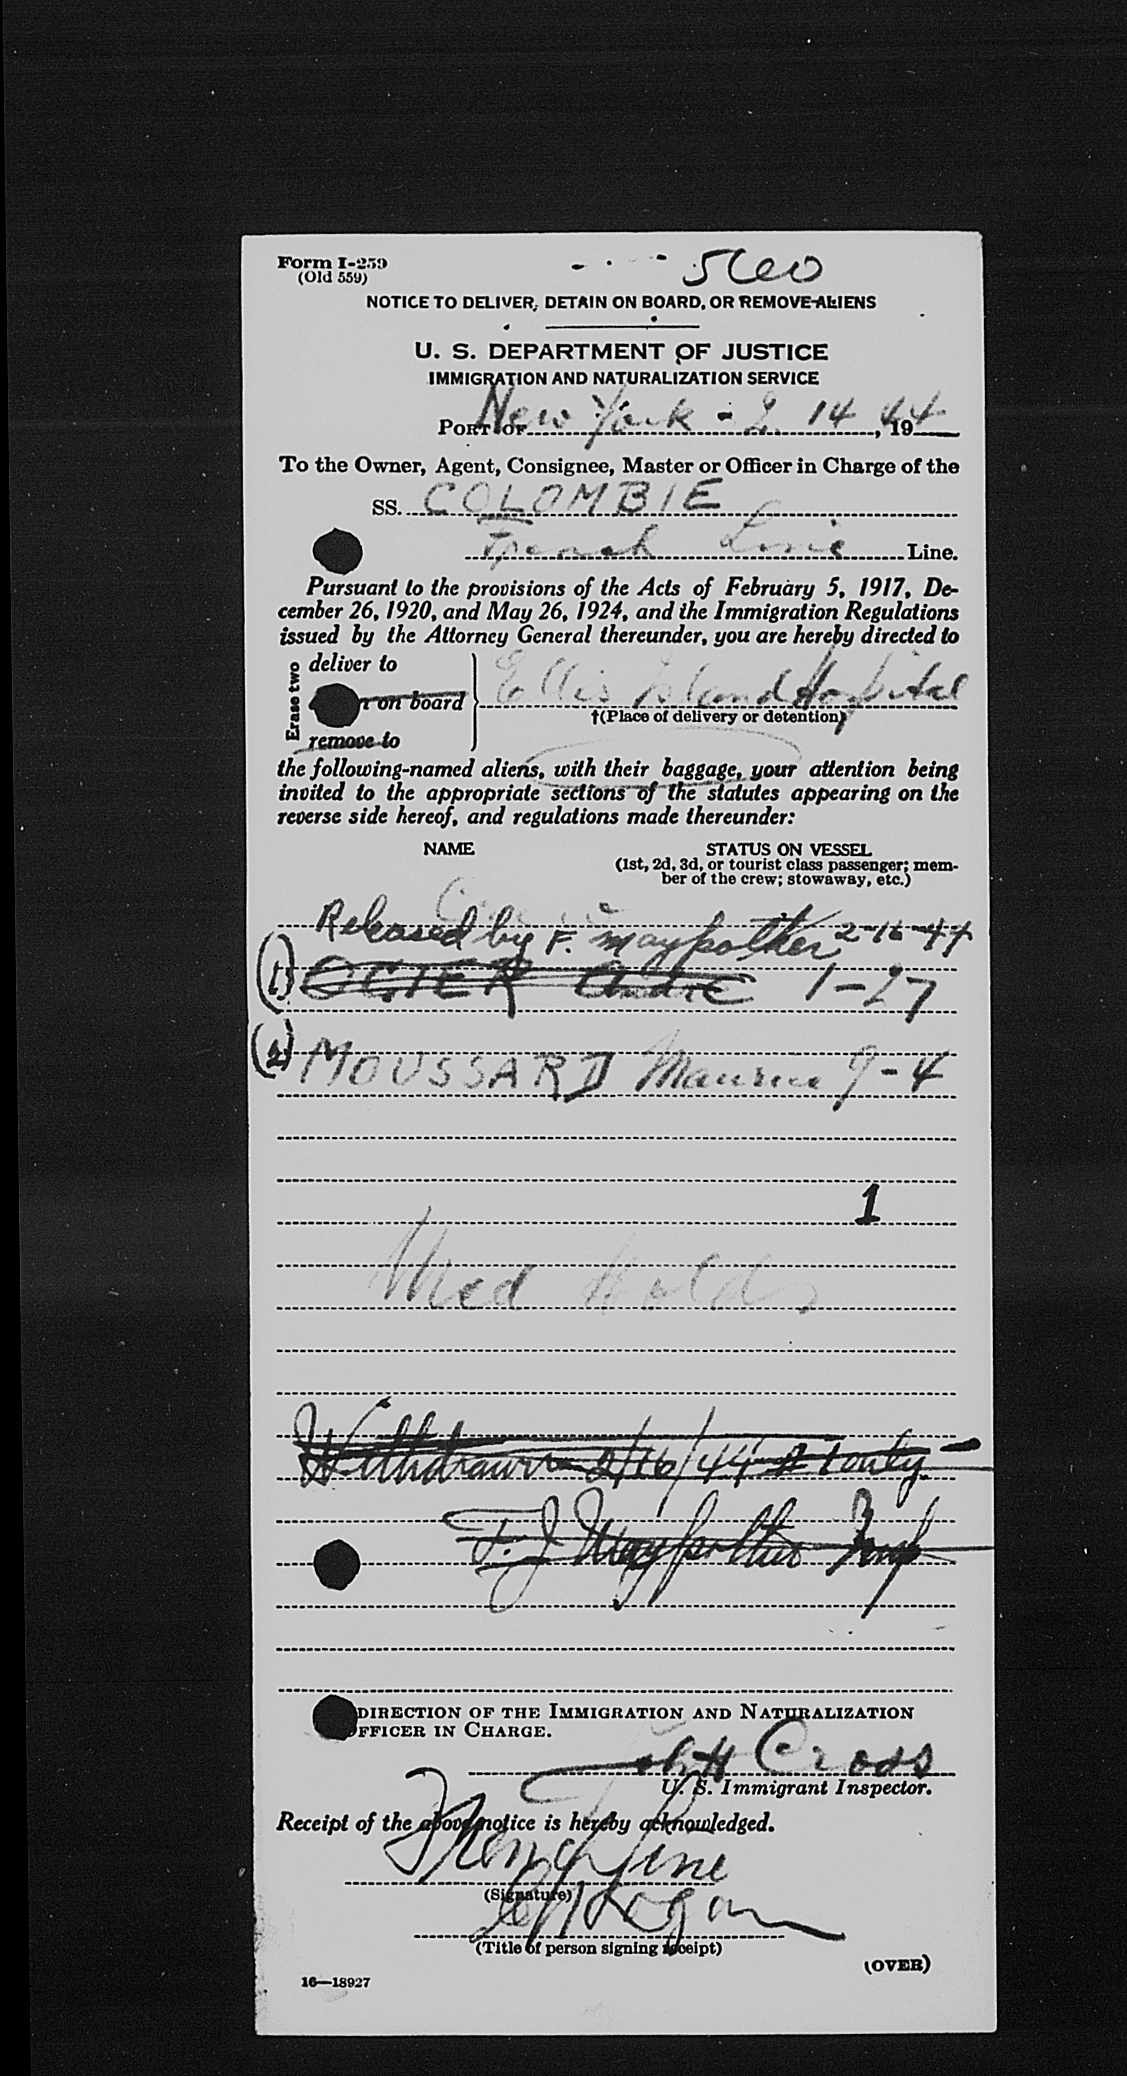 Form I-259
(Old 559)
NOTICE TO DELIVER, DETAIN ON BOARD, OR REMOVE ALIENS
U. S. DEPARTMENT OF JUSTICE
IMMIGRATION AND NATURALIZATION SERVICE
PORT OF New York - 2. 14, 1944
To the Owner, Agent, Consignee, Master or Officer in Charge of the
SS. COLOMBIE
French Line Line.
Pursuant to the provisions of the Acts of February 5, 1917, De-
cember 26, 1920, and May 26, 1924, and the Immigration Regulations
issued by the Attorney General thereunder, you are hereby directed to
Erase two
deliver to
on board
remove to
Ellis Island Hospital
†(Place of delivery or detention)
the following-named aliens, with their baggage, your attention being
invited to the appropriate sections of the statutes appearing on the
reverse side hereof, and regulations made thereunder:
NAME STATUS ON VESSEL
(1st, 2d, 3d, or tourist class passenger; mem-
ber of the crew; stowaway, etc.)
Released by F. Maypother 2-16-44
(1) OGIER Andre 1-27
(2) MOUSSARD Maurice 9-4
1
Med Holds
Withdrawn 2/16/44 # 1 only
F. J. Maypother Insp
DIRECTION OF THE IMMIGRATION AND NATURALIZATION
FFICER IN CHARGE.
John H Cross
U. S. Immigrant Inspector.
Receipt of the above notice is hereby acknowledged.
French Line
(Signature)
Logan
(Title of person signing receipt)
(OVER)
16—18927